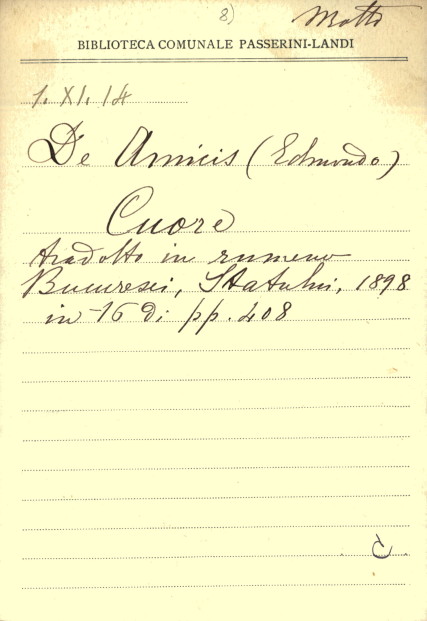 8)
Motto
BIBLIOTECA COMUNALE PASSERINI-LANDI
1. XI. 14
De Amicis (Edmondo)
Cuore
tradotto in rumeno
Bucuresci, Statului, 1898
in 16 di pp. 408
C